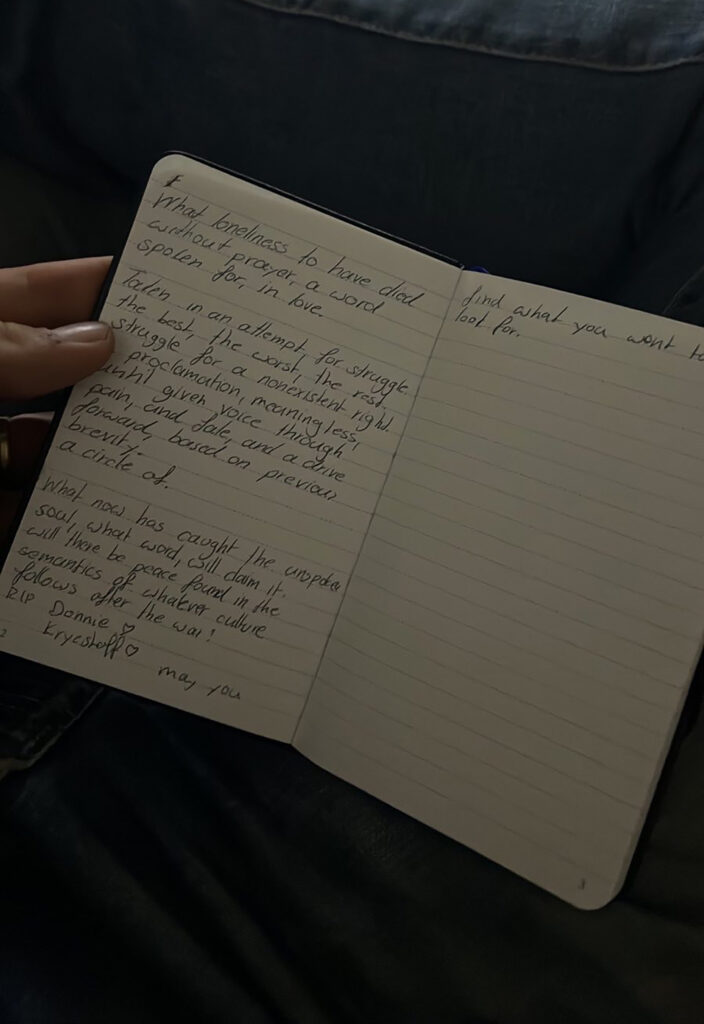 What loneliness to have died
without prayer, a word
spoken for, in love.
Taken in an attempt, for struggle.
the best, the worst, the rest,
struggle for a nonexistent right.
proclamation, meaningless,
until given voice through
pain, and fate, and a drive
forward, based on previous
brevity.
a circle of.
What now has caught the unspoken
soul, what word, will claim it.
will there be peace found in the
semantics of whatever culture
follows after the war!
RIP Donnie ♡
Krycstoff ♡
may you
2
find what you wont to
look for.
3